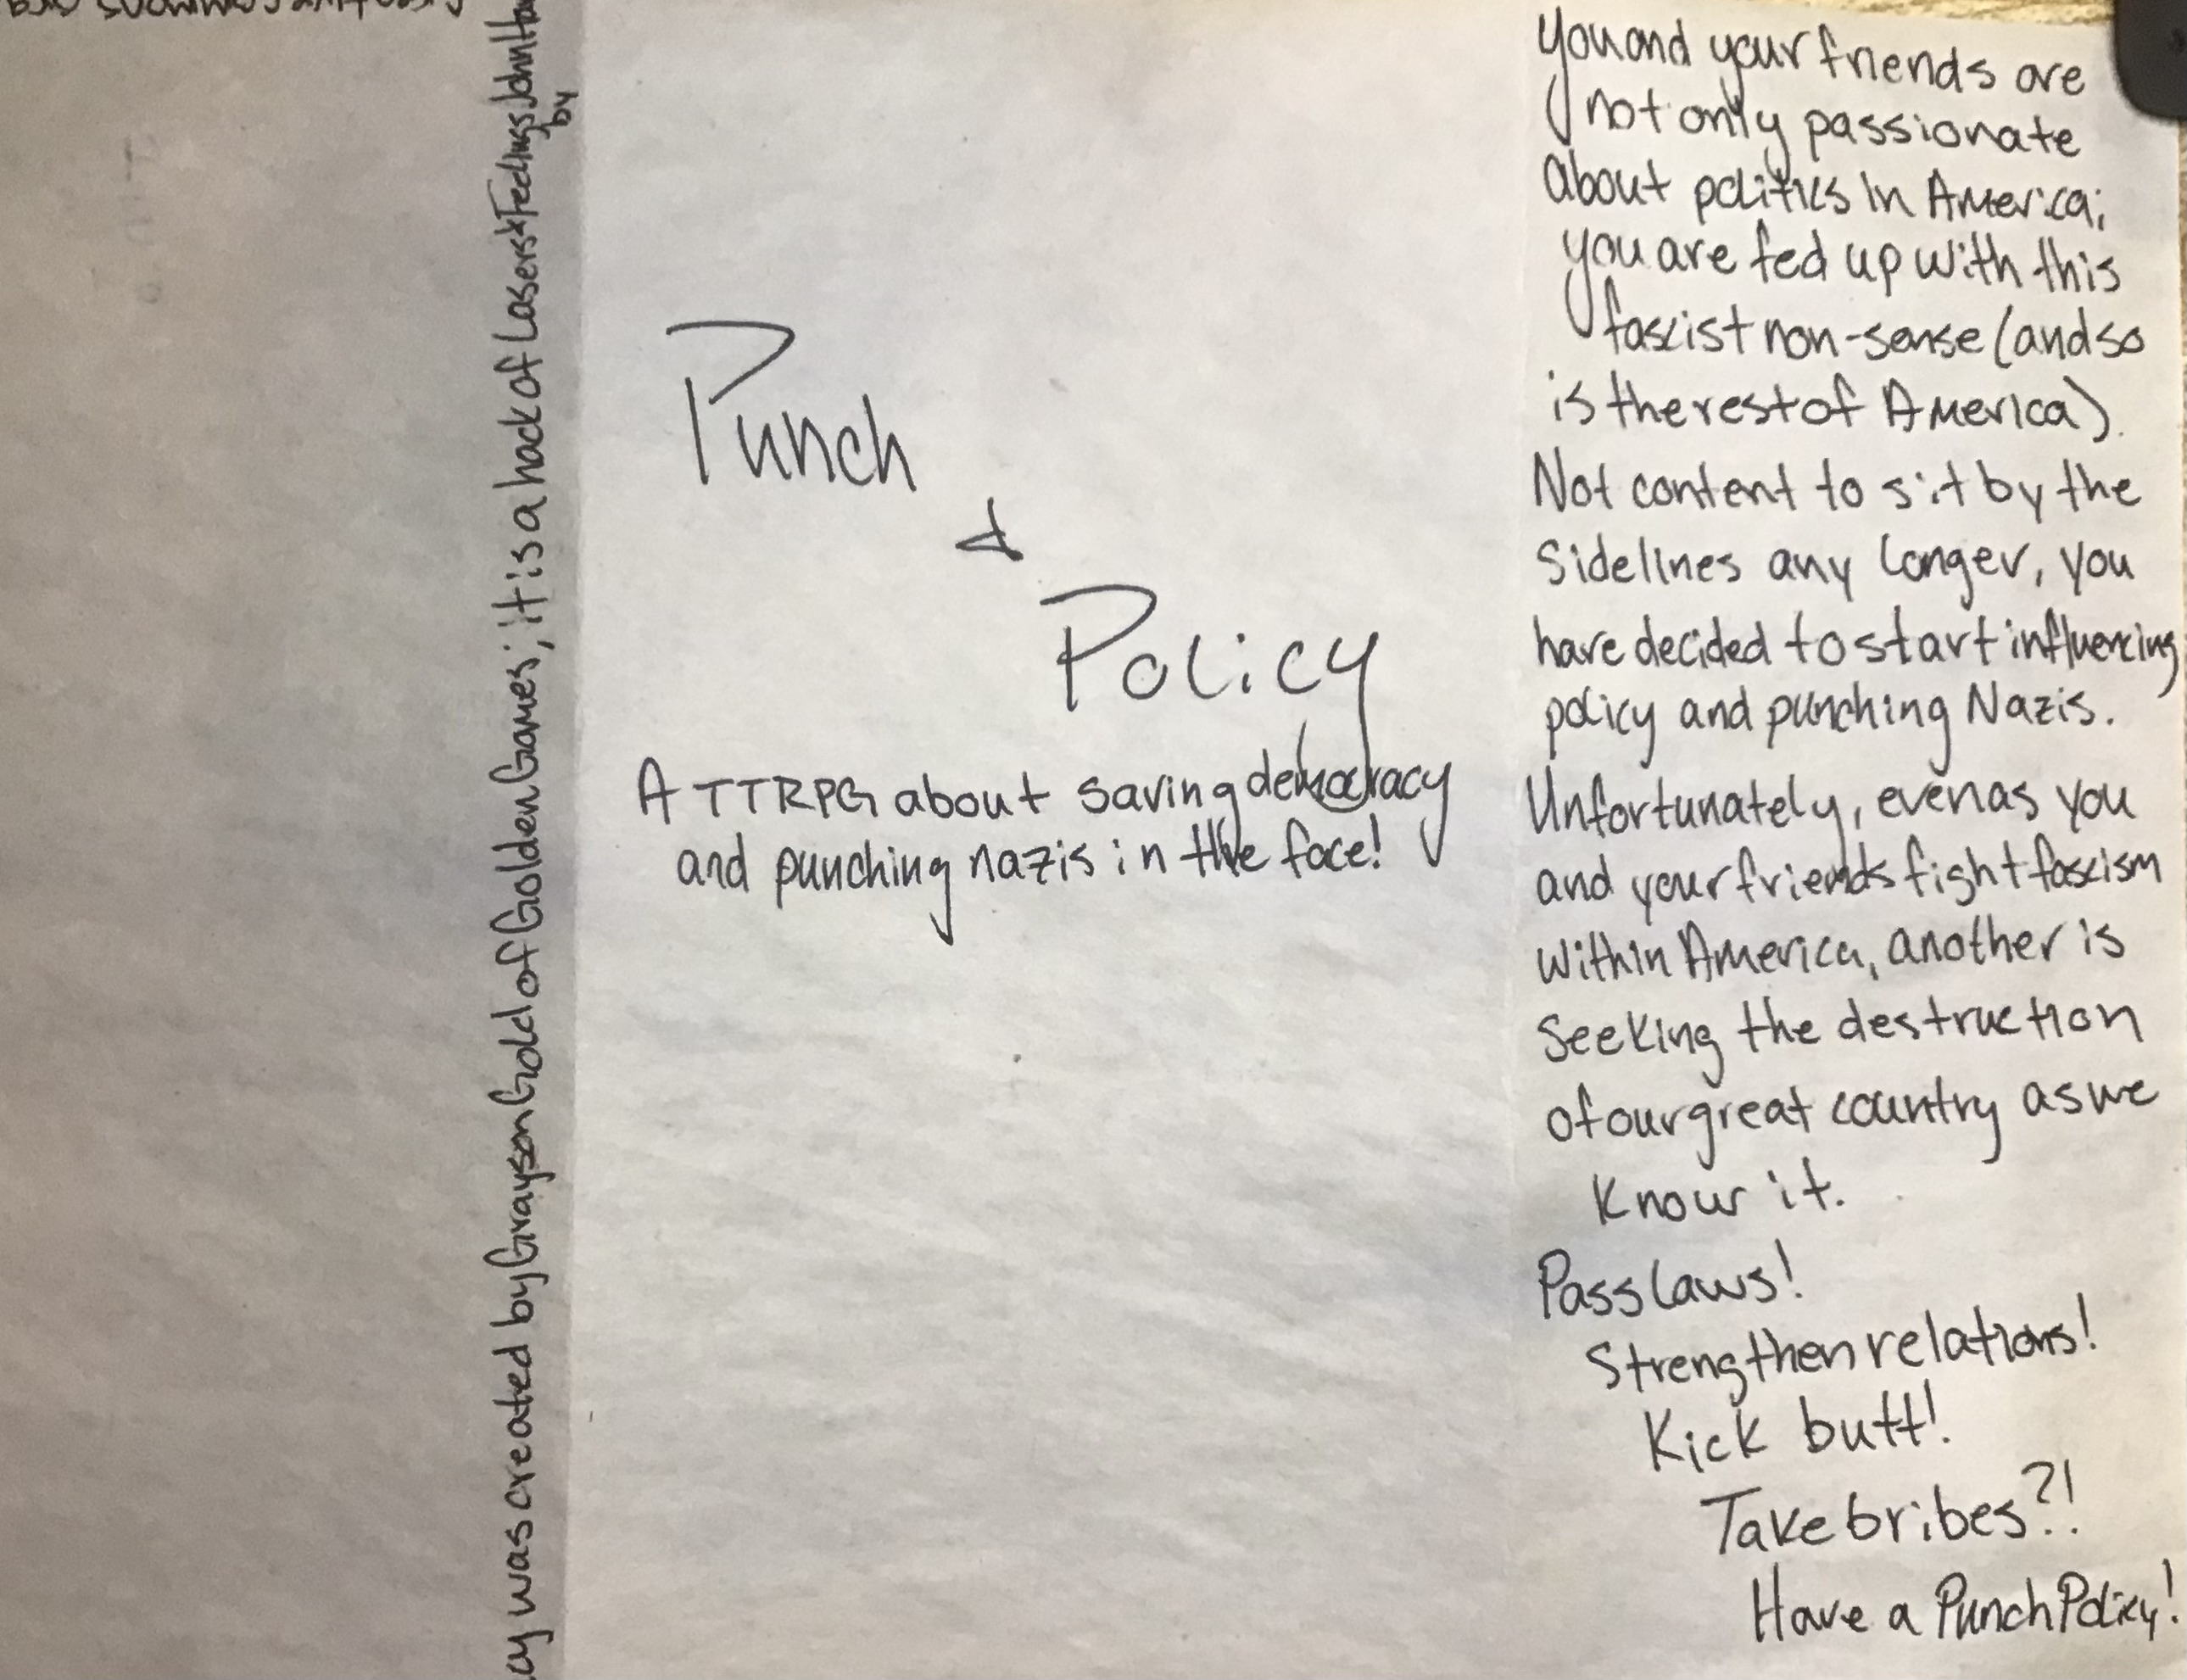 was created by Grayson Gold of Golden Games; it is a hack of Lasers & Feelings John
by
Punch
&
Policy
A TTRPG about saving democracy
and punching nazis in the face!
You and your friends are
not only passionate
about politics in America;
you are fed up with this
fascist non-sense (and so
is the rest of America).
Not content to sit by the
sidelines any longer, you
have decided to start influencing
policy and punching Nazis.
Unfortunately, even as you
and your friends fight fascism
within America, another is
seeking the destruction
of our great country as we
know it.
Pass laws!
Strengthen relations!
Kick butt!
Take bribes?!
Have a Punch Policy!